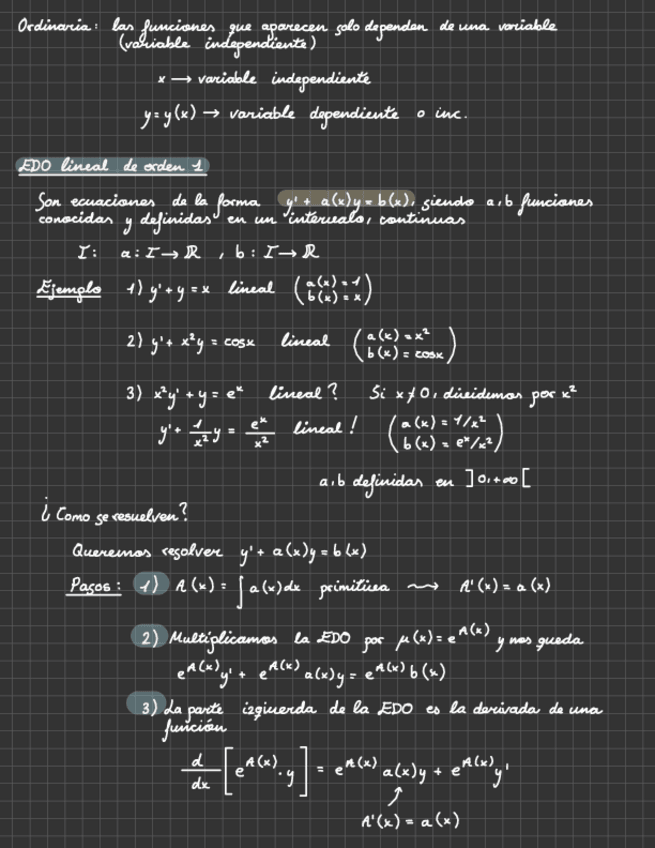 Ordinaria: las funciones que aparecen solo dependen de una variable
(variable independiente)
x → variable independiente
y = y(x) → variable dependiente o inc.
EDO lineal de orden 1
Son ecuaciones de la forma y' + a(x)y = b(x), siendo a,b funciones
conocidas y definidas en un intervalo, continuas
I: a: I → ℝ , b: I → ℝ
Ejemplo 1) y' + y = x lineal (a(x) = 1
b(x) = x)
2) y' + x²y = cosx lineal (a(x) = x²
b(x) = cosx)
3) x²y' + y = eˣ lineal? Si x ≠ 0, dividimos por x²
y' + 1/x² y = eˣ/x² lineal! (a(x) = 1/x²
b(x) = eˣ/x²)
a,b definidas en ]0,+∞[
¿Como se resuelven?
Queremos resolver y' + a(x)y = b(x)
Pasos: 1) A(x) = ∫ a(x)dx primitiva ⇝ A'(x) = a(x)
2) Multiplicamos la EDO por μ(x) = e^A(x) y nos queda
e^A(x) y' + e^A(x) a(x)y = e^A(x) b(x)
3) La parte izquierda de la EDO es la derivada de una
función
d/dx [e^A(x) · y] = e^A(x) a(x)y + e^A(x) y'
A'(x) = a(x)